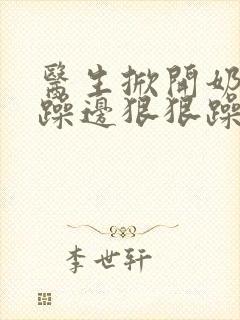 醫生掀開奶
躁邊狠狠躁
李世轩